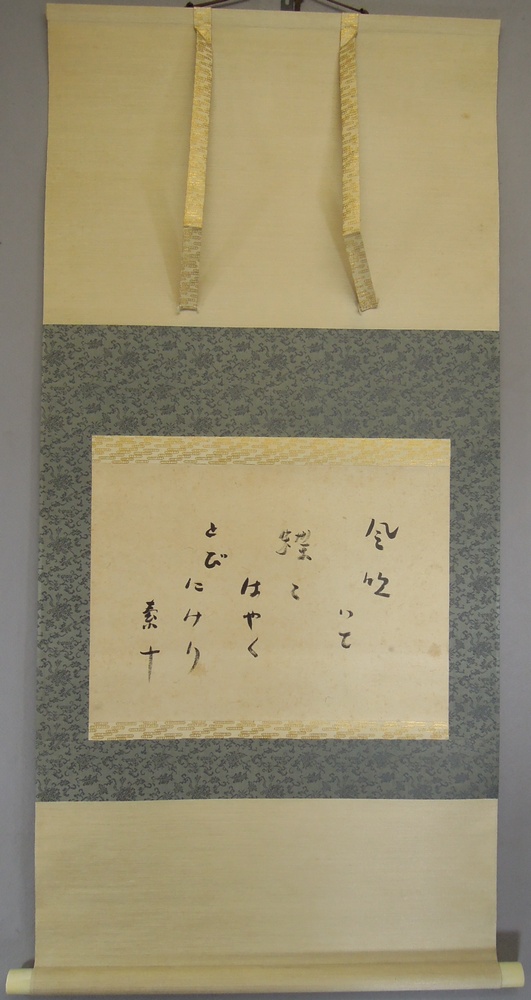 風吹
いて
蝶々
はやく
とび
にけり
素十